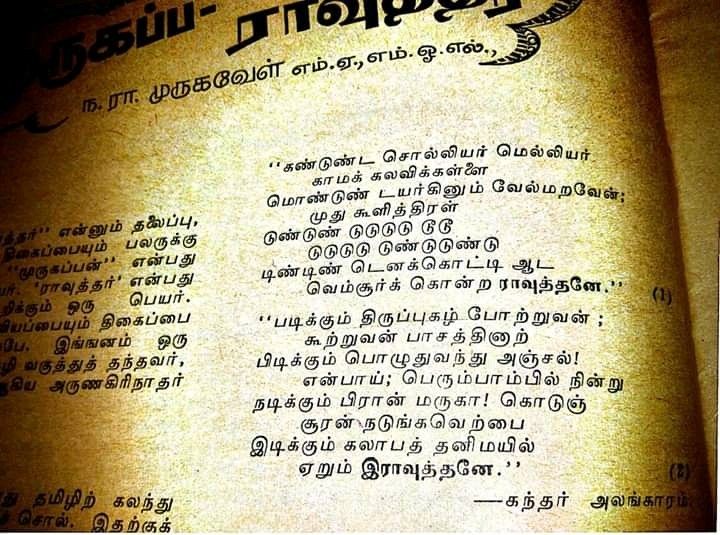 ராவுத்தர்
ந. ரா. முருகவேள் எம்.ஏ.,எம்.ஓ.எல்.,
என்னும் தலைப்பு,
திகைப்பையும் பலருக்கு
"முருகப்பன்" என்பது
'ராவுத்தர்' என்பது
றிக்கும் ஒரு பெயர்.
வியப்பையும் திகைப்பை
இங்ஙனம் ஒரு
வகுத்துத் தந்தவர்,
அருணகிரிநாதர்
தமிழிற் கலந்து
சொல். இதற்குக்
"கண்டுண்ட சொல்லியர் மெல்லியர்
காமக் கலவிக்கள்ளை
மொண்டுண் டயர்கினும் வேல்மறவேன்;
முது கூளித்திரள்
டுண்டுண் டுடுடுடு டூடூ
டுடுடுடு டுண்டுடுண்டு
டிண்டிண் டெனக்கொட்டி ஆட
வெம்சூர்க் கொன்ற ராவுத்தனே." (1)
"படிக்கும் திருப்புகழ் போற்றுவன் ;
கூற்றுவன் பாசத்தினாற்
பிடிக்கும் பொழுதுவந்து அஞ்சல்!
என்பாய்; பெரும்பாம்பில் நின்று
நடிக்கும் பிரான் மருகா! கொடுஞ்
சூரன் நடுங்கவெற்பை
இடிக்கும் கலாபத் தனிமயில்
ஏறும் இராவுத்தனே." (2)
—கந்தர் அலங்காரம்.